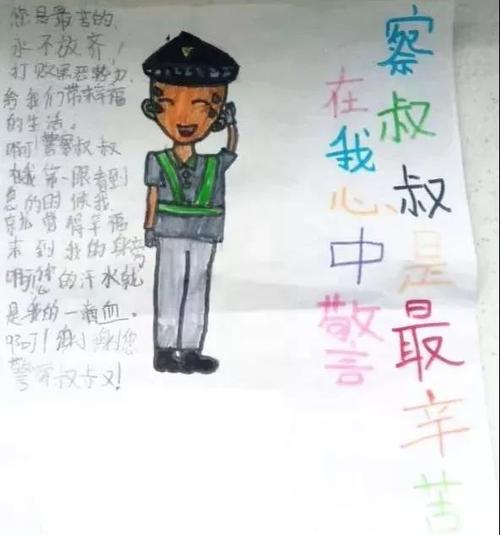 在我心中警
察叔叔是最辛苦
您是最苦的,
永不放齐！
打败黑恶势力,
给我们带来幸福
的生活。
啊！警察叔叔
在我第一眼看到
您的时候我
就觉得幸福
来到我的身旁
啊！您的汗水就
是我的一滴血。
啊！谢谢您
警察叔叔！